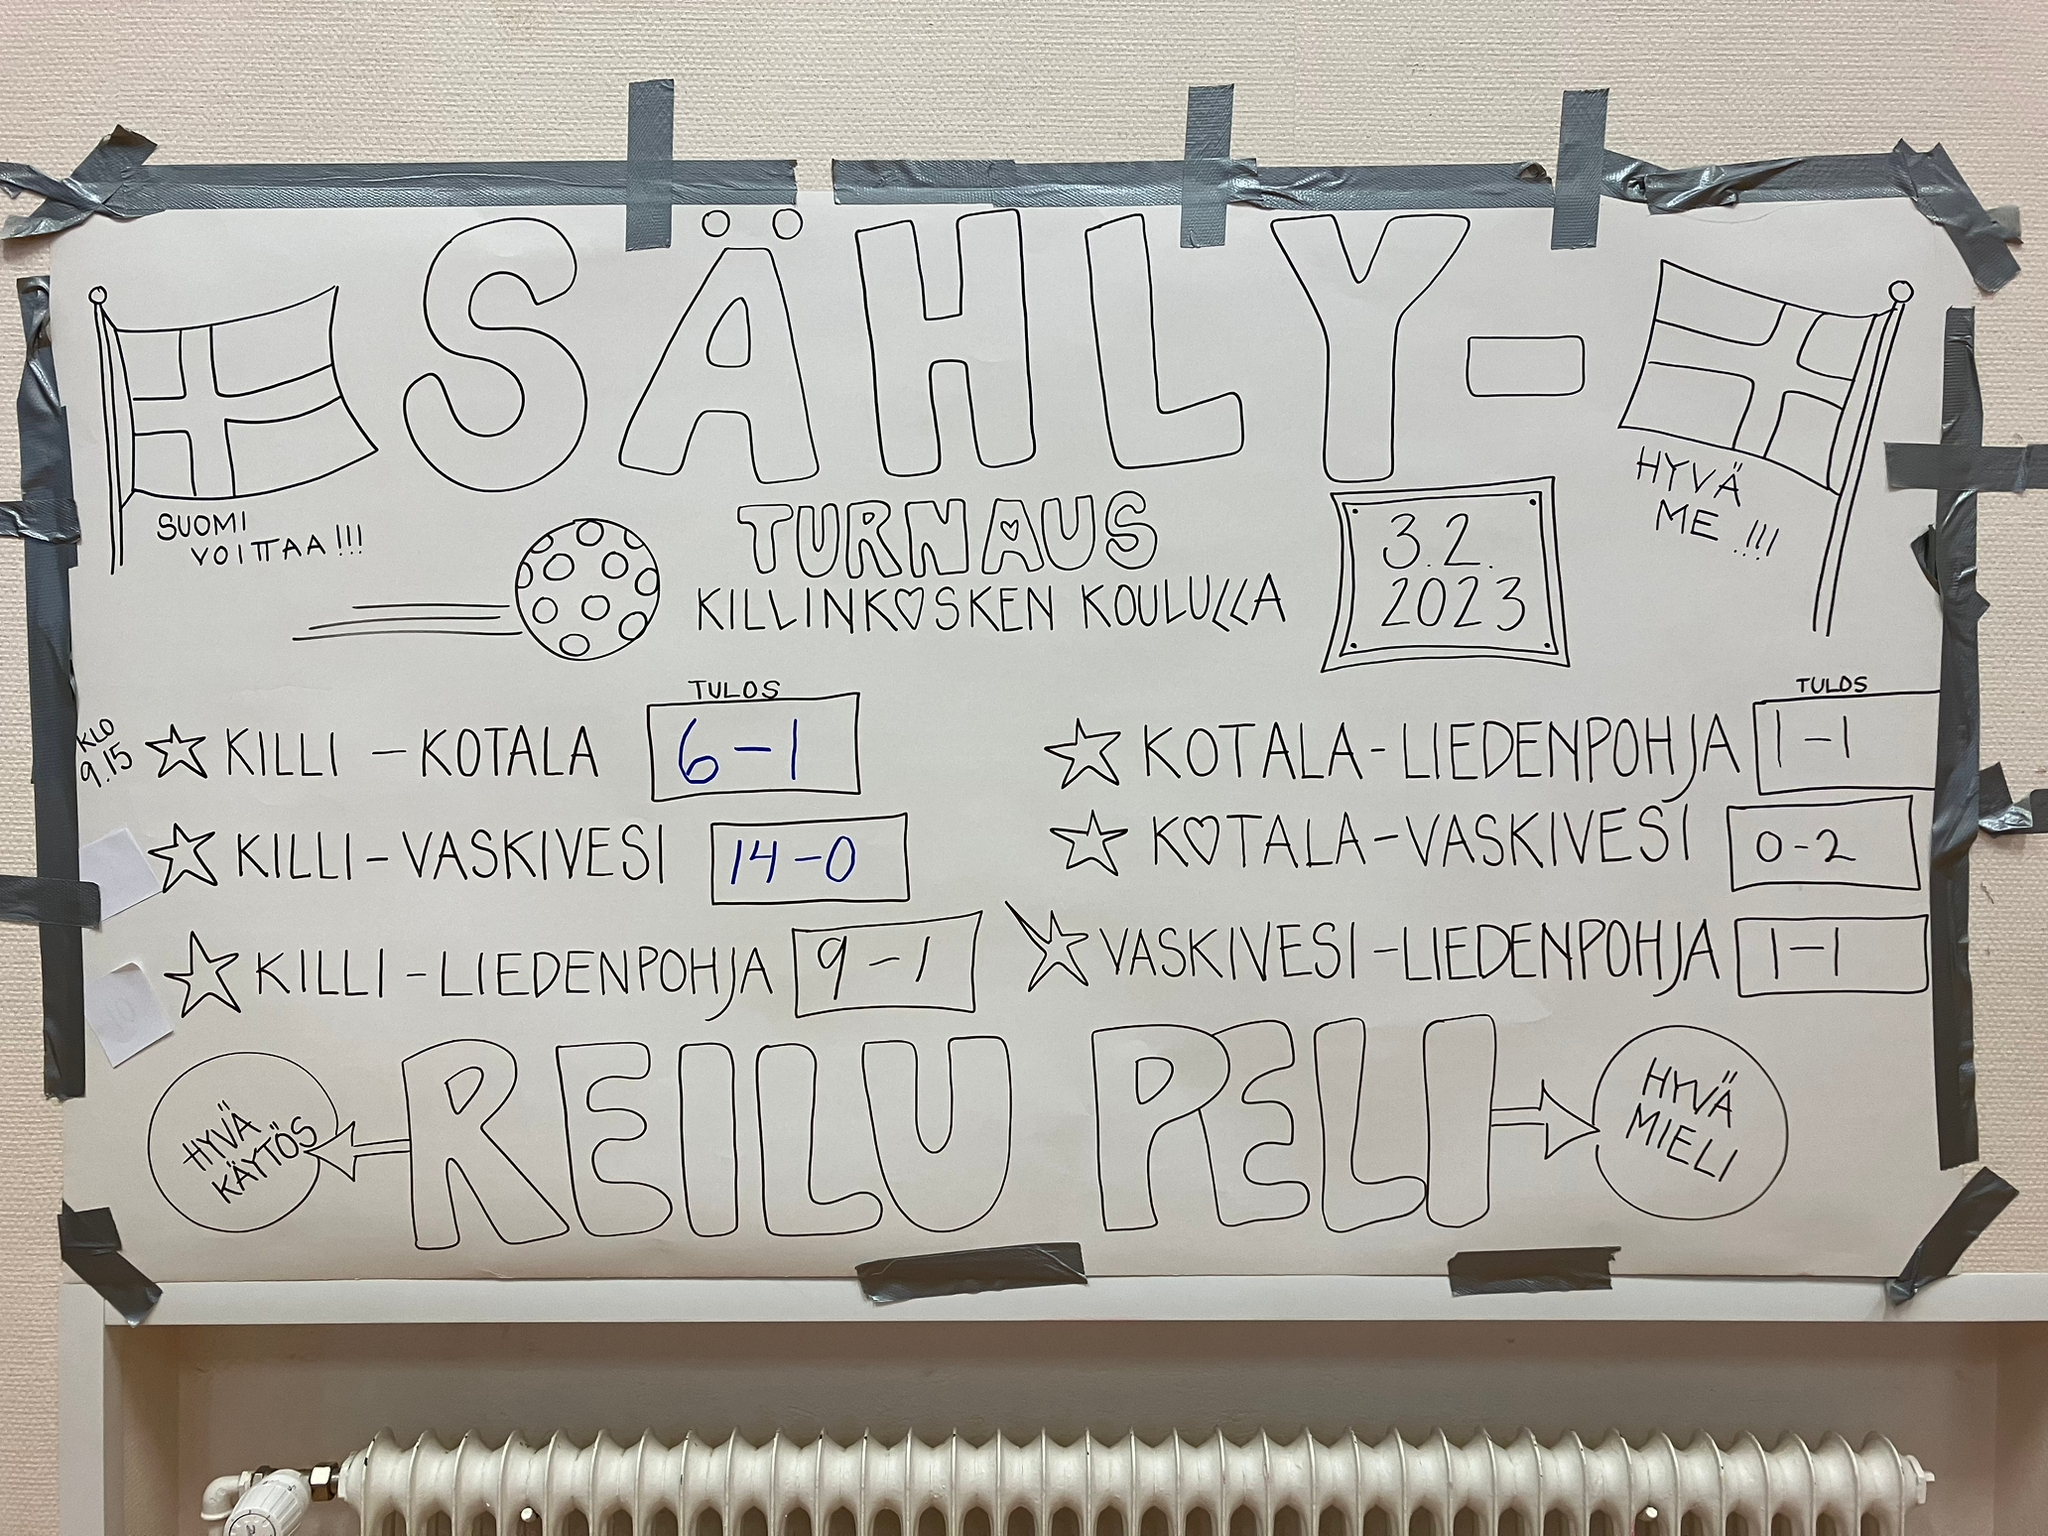 SÄHLY-
TURNAUS
KILLINKOSKEN KOULULLA
3.2.
2023
SUOMI
VOITTAA!!!
HYVÄ
ME!!!
KLO
9.15
TULOS
KILLI - KOTALA 6-1
KILLI - VASKIVESI 14-0
KILLI - LIEDENPOHJA 9-1
TULOS
KOTALA - LIEDENPOHJA 1-1
KOTALA - VASKIVESI 0-2
VASKIVESI - LIEDENPOHJA 1-1
HYVÄ
KÄYTÖS
REILU PELI
HYVÄ
MIELI